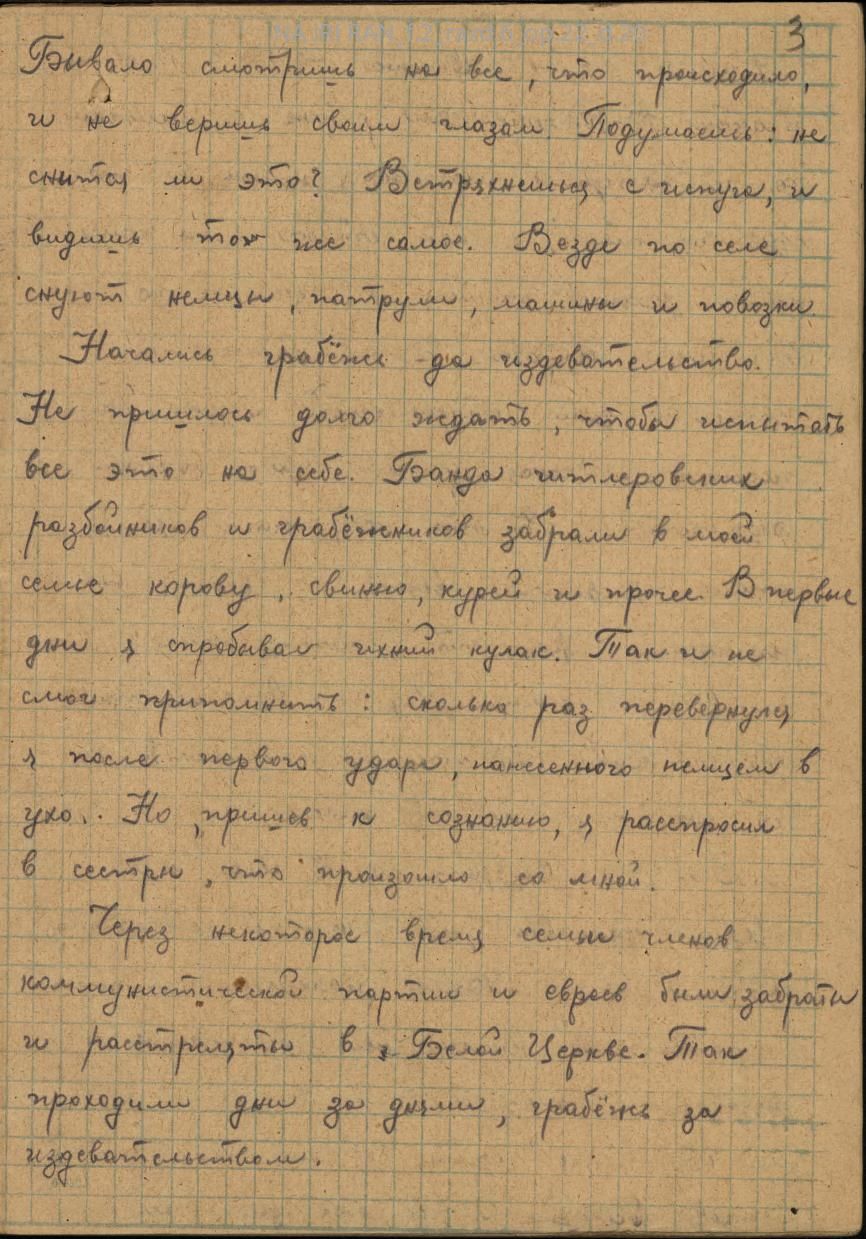 3
Бывало смотришь на все, что происходило,
и не веришь своим глазам. Подумаешь: не
снится ли это? Встряхнешься с испуга, и
видишь то же самое. Везде по селе
снуют немцы, патрули, машины и повозки.
Начались грабёжь да издевательство.
Не пришлось долго ждать, чтобы испытать
все это на себе. Банда гитлеровских
разбойников и грабёжников забрали в моей
семье корову, свинью, курей и прочее. В первые
дни я спробывал ихний кулак. Так и не
смог припомнить: сколько раз перевернулся
я после первого удара, нанесенного немцем в
ухо... Но, пришев к сознанию, я расспросил
в сестры, что произошло со мной.
Через некоторое время семьи членов
коммунистической партии и евреев были забраты
и расстреляты в Белой Церкве. Так
проходили дни за днями, грабёжь за
издевательством.